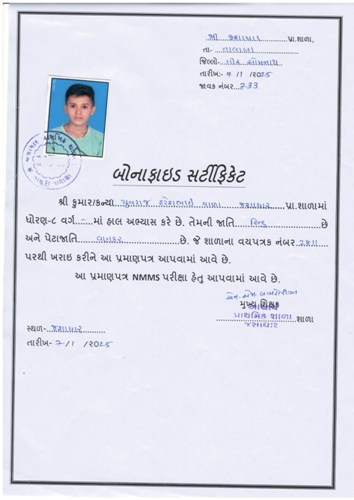 શ્રી જશાધાર પ્રા.શાળા,
તા- તાલાલા
જિલ્લો- ગીર સોમનાથ
તારીખ:- 7/1 /2025
જાવક નંબર:- 233
બોનાફાઇડ સર્ટીફિકેટ
શ્રી કુમાર/કન્યા યુવરાજ હરેશભાઈ વાળા જશાધાર પ્રા.શાળામાં
ધોરણ-૮ વર્ગ - માં હાલ અભ્યાસ કરે છે. તેમની જાતિ હિન્દુ છે
અને પેટાજાતિ વાણકર છે. જે શાળાના વયપત્રક નંબર 2811
પરથી ખરાઇ કરીને આ પ્રમાણપત્ર આપવામાં આવે છે.
આ પ્રમાણપત્ર NMMS પરીક્ષા હેતુ આપવામાં આવે છે.
મુખ્ય શિક્ષક
આચાર્ય
પ્રાથમિક શાળા શાળા
જશાધાર
સ્થળ:- જશાધાર
તારીખ:- 7/1 /2025